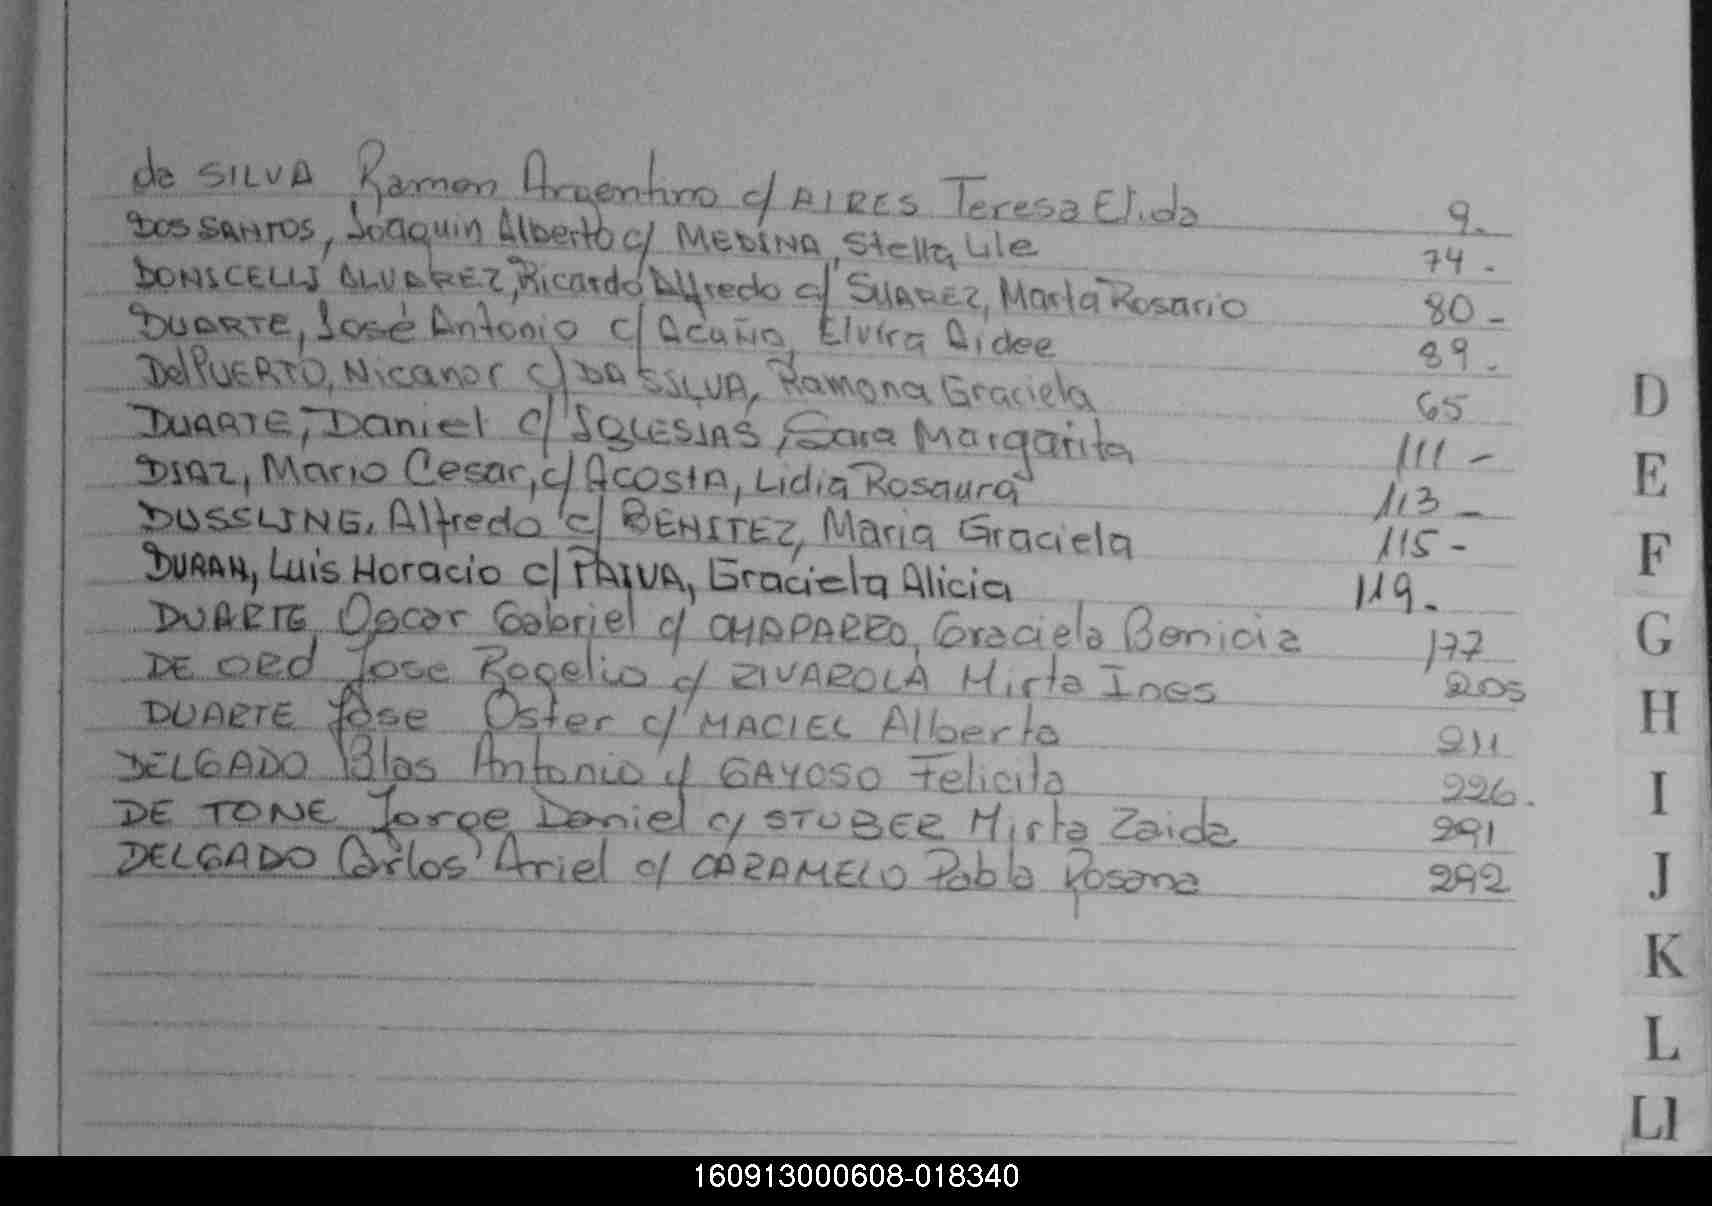 da SILVA Ramon Argentino c/ AIRES Teresa Elida 9.
DOS SANTOS, Joaquin Alberto c/ MEDINA, Stella Lile 74-
DONISCELLI ALVAREZ, Ricardo Alfredo c/ SUAREZ, Marta Rosario 80-
DUARTE, José Antonio c/ Acuña, Elvira Aidee 89.
DelPUERTO, Nicanor c/ DA SILVA, Ramona Graciela 65
DUARTE, Daniel c/ IGLESIAS, Sara Margarita 111-
DIAZ, Mario Cesar, c/ ACOSTA, Lidia Rosaura 113-
DUSSLING, Alfredo c/ BENITEZ, Maria Graciela 115-
DURAN, Luis Horacio c/ PAIVA, Graciela Alicia 119.
DUARTE, Oscar Gabriel c/ CHAPARRO, Graciela Benicia 177
DE ORD Jose Rogelio c/ RIVAROLA Mirta Ines 205
DUARTE Jose Oster c/ MACIEL Alberta 211
DELGADO Blas Antonio c/ GAYOSO Felicita 226.
DE TONE Jorge Daniel c/ STUBER Mirta Zaida 291
DELGADO Carlos Ariel c/ CARAMELO Pabla Rosana 292
D
E
F
G
H
I
J
K
L
Ll
160913000608-018340